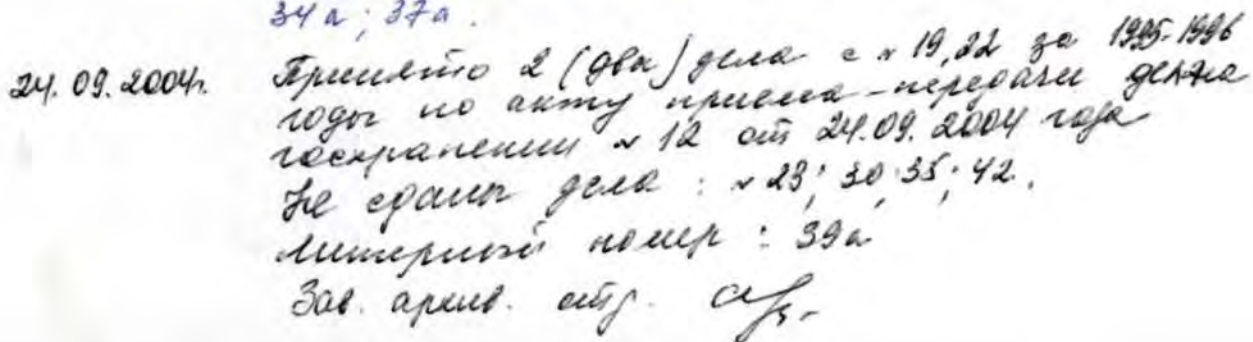 34а; 37а.
24. 09. 2004г. Принято 2 (два) дела с № 19, 22 за 1995-1996
годы по акту приема-передачи дел на
госхранении № 12 от 24.09. 2004 года
Не сданы дела : № 23; 30; 35; 42.
Литерный номер : 39а
Зав. архив. отд.